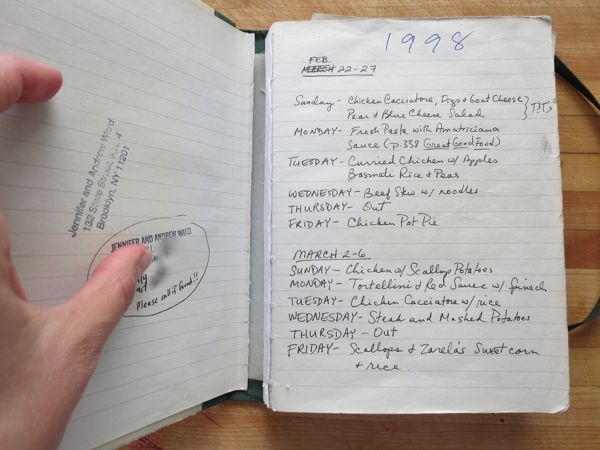 Jennifer and Andrew Ward
132 State Street, Apt. 4
Brooklyn, NY 11201
JENNIFER AND ANDREW WARD
Please call if found!!
1998
FEB.
MARCH 22-27
Sunday - Chicken Cacciatore, Figs & Goat Cheese
Pear & Blue Cheese Salad
MONDAY - Fresh Pasta with Amatriciana
Sauce (p. 338 Great Good Food)
TUESDAY - Curried Chicken w/ Apples
Basmati Rice & Peas
WEDNESDAY - Beef Stew w/ noodles
THURSDAY - Out
FRIDAY - Chicken Pot Pie
MARCH 2-6
SUNDAY - Chicken w/ Scallop Potatoes
MONDAY - Tortellini & Red Sauce w/ Spinach
TUESDAY - Chicken Cacciatore w/ rice
WEDNESDAY - Steak and Mashed Potatoes
THURSDAY - Out
FRIDAY - Scallops & Zarela's Sweet corn
& rice